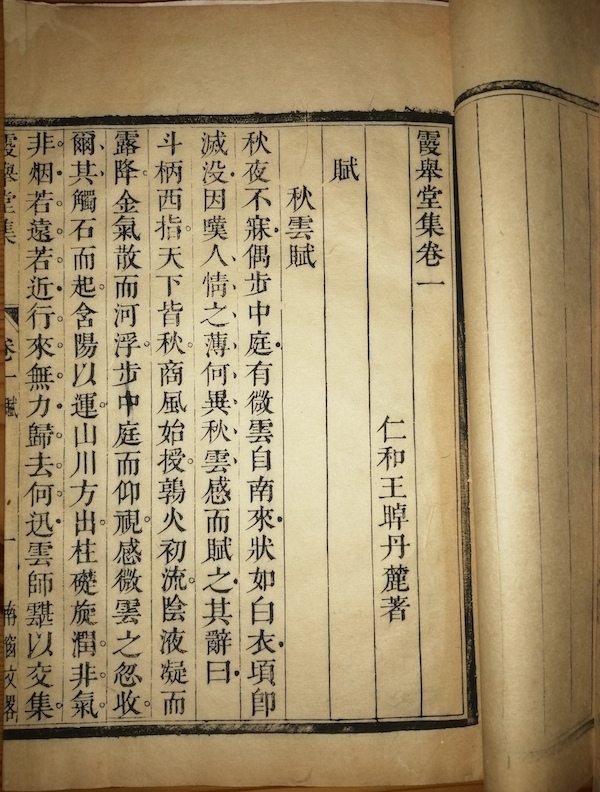 霞舉堂集卷一
仁和王晫丹麓著
賦
秋雲賦
秋夜不寐偶步中庭有微雲自南來狀如白衣頃卽
滅没因嘆人情之薄何異秋雲感而賦之其辭曰
斗柄西指天下皆秋商風始授鶉火初流陰液凝而
露降金氣散而河浮步中庭而仰視感微雲之忽收
爾其觸石而起含陽以運山川方出柱礎旋潤非氣
非烟若遠若近行來無力歸去何迅雲師䨴以交集
霞舉堂集 卷一 賦 一 南窗文畧